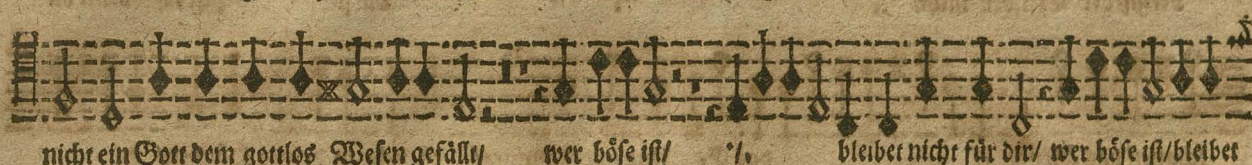 nicht ein Gott dem gottlos Wesen gefällt/ wer böse ist/ ∙/. bleibet nicht für dir/ wer böse ist/ bleibet